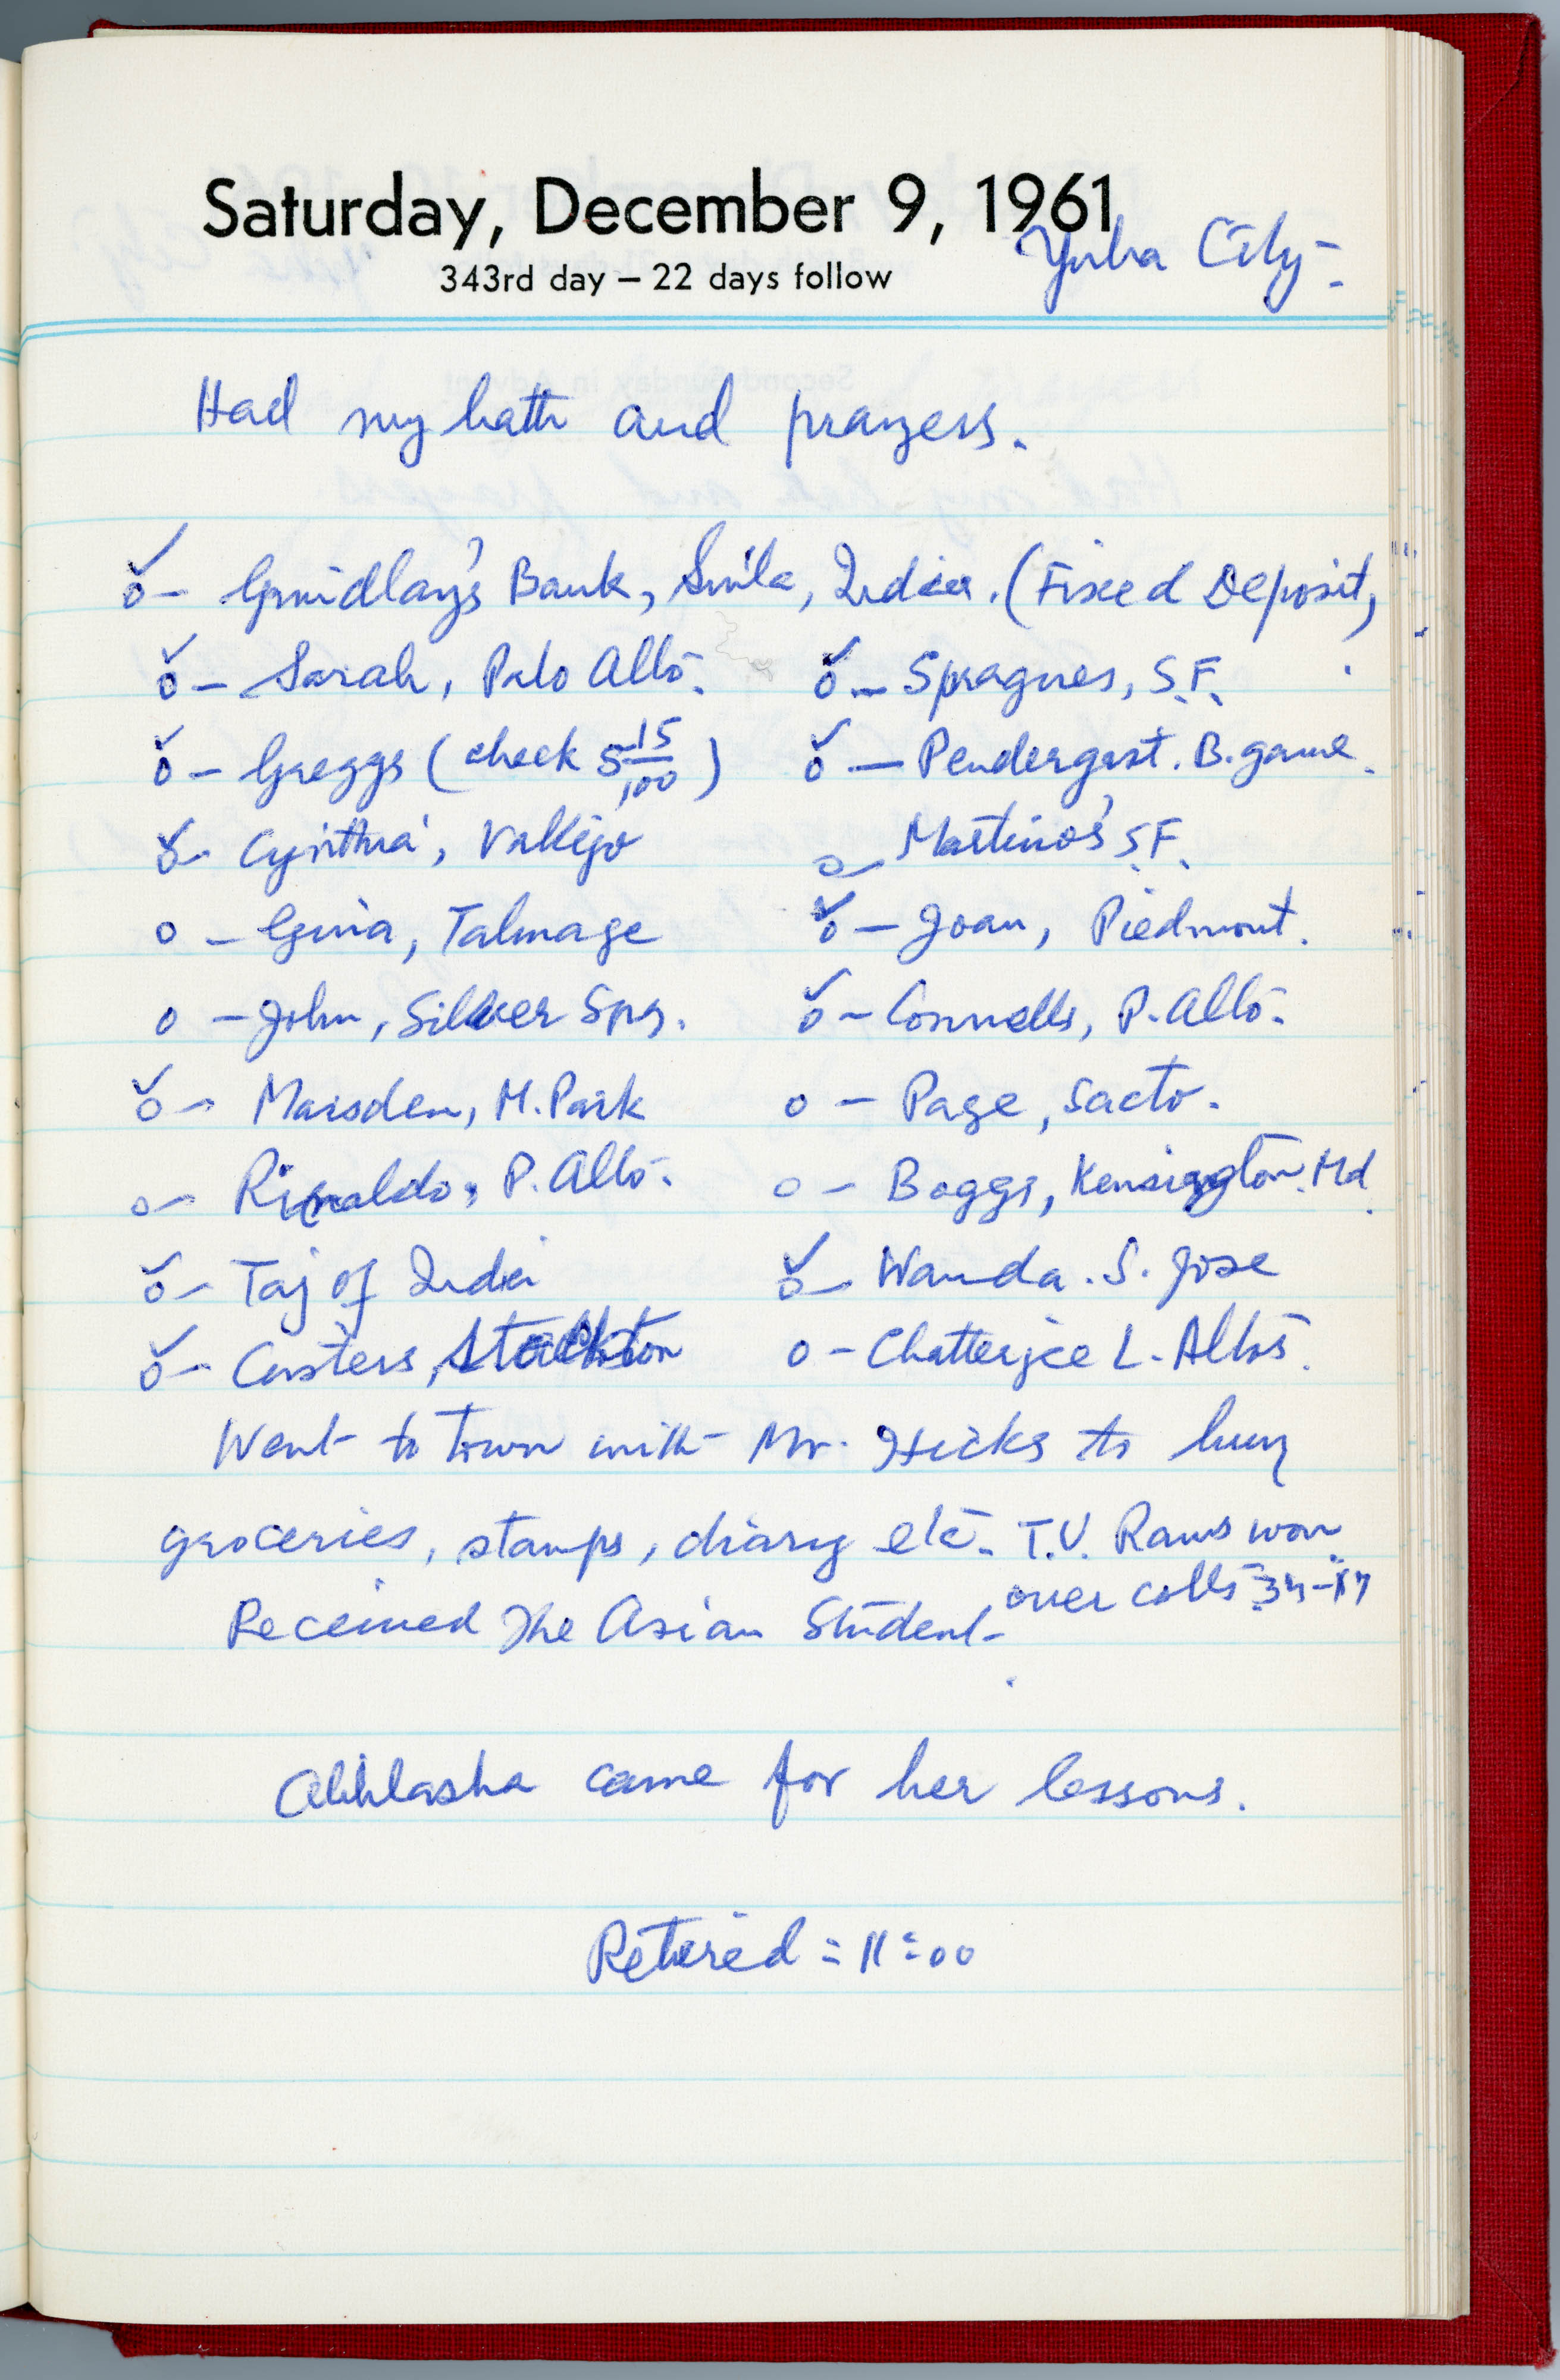 Saturday, December 9, 1961
343rd day – 22 days follow
Yuba City.
Had my bath and prayers.
o – Grindlay's Bank, Simla, India. (Fixed Deposit)
o – Sarah, Palo Alto. o – Spragues, S.F.
o – Greggs (check 5 15/100) o – Pendergast. B.game.
o – Cynthia, Vallejo o – Martino's S.F.
o – Gina, Talmage o – Joan, Piedmont.
o – John, Silver Spg. o – Connells, P. Alto.
o – Marsden, M. Park o – Page, Sacto.
o – Rinaldo, P. Alto. o – Boggs, Kensington. Md.
o – Taj of India o – Wanda. S. Jose
o – Custers, Stockton o – Chatterjee L. Altos.
Went to town with Mr. Hicks to buy
groceries, stamps, diary etc. T.V. Rams won
over colts 34–17
Received The Asian Student.
Abhlasha came for her lessons.
Retired = 11:00